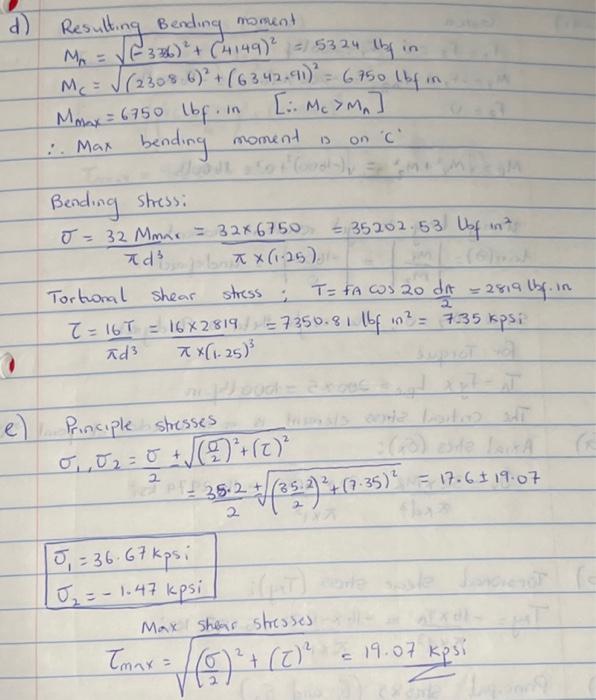 d) Resulting Bending moment
M_A = √(-3336)² + (4149)² = 5324 lbf in
M_C = √(2308.6)² + (6342.91)² = 6750 lbf in
M_max = 6750 lbf. in [∴ M_C > M_A]
∴ Max bending moment is on 'C'
Bending stress:
σ = 32 M_max / πd³ = 32×6750 / π×(1.25) = 35202.53 lbf in²
Tortional shear stress ; T = FA cos 20 dA/2 = 2819 lbf.in
τ = 16T / πd³ = 16×2819 / π×(1.25)³ = 7350.81 lbf in² = 7.35 kpsi
e) Principle stresses
σ₁, σ₂ = σ/2 ± √(σ/2)² + (τ)²
= 35.2/2 ± √(35.2/2)² + (7.35)² = 17.6 ± 19.07
σ₁ = 36.67 kpsi
σ₂ = - 1.47 kpsi
Max shear stresses
τ_max = √(σ/2)² + (τ)² = 19.07 kpsi